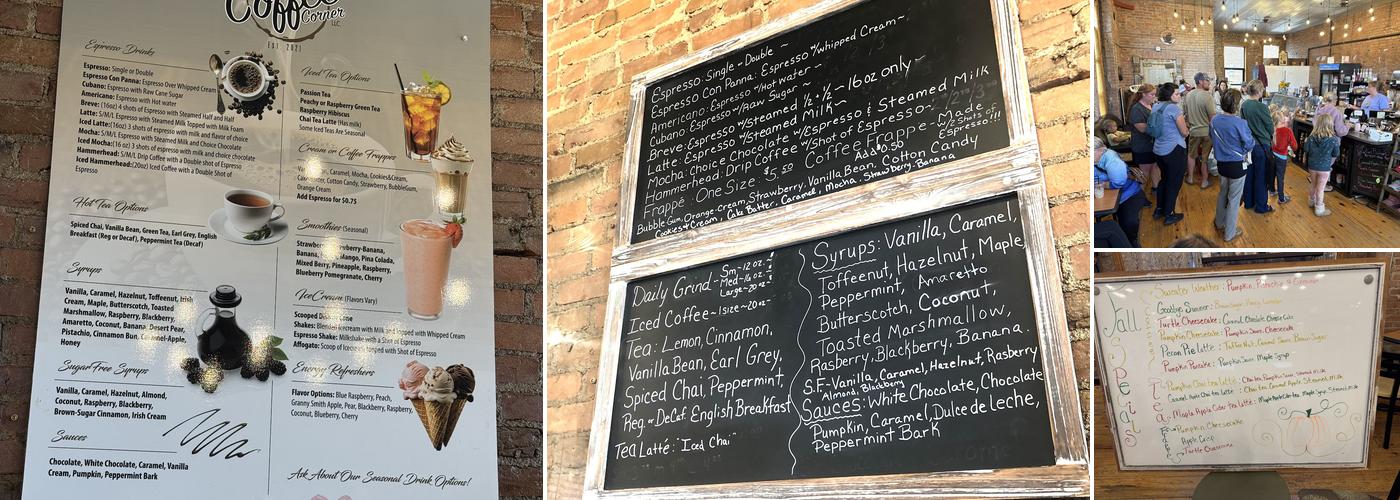 Coffee
Corner
LLC.
EST 2021
Espresso Drinks
Espresso: Single or Double
Espresso Con Panna: Espresso Over Whipped Cream
Cubano: Espresso with Raw Cane Sugar
Americano: Espresso with Hot water
Breve: (16oz) 4 shots of Espresso with Steamed Half and Half
Latte: S/M/L Espresso with Steamed Milk Topped with Milk Foam
Iced Latte:(16oz) 3 shots of espresso with milk and flavor of choice
Mocha: S/M/L Espresso with Steamed milk and Choice Chocolate
Iced Mocha:(16oz) 3 shots of espresso with milk and choice chocolate
Hammerhead: S/M/L Drip Coffee with a Double shot of Espresso
Iced Hammerhead:(20oz) Iced Coffee with a Double Shot of
Espresso
Hot Tea Options
Spiced Chai, Vanilla Bean, Green Tea, Earl Grey, English
Breakfast (Reg or Decaf), Peppermint Tea (Decaf)
Syrups
Vanilla, Caramel, Hazelnut, Toffeenut, Irish
Cream, Maple, Butterscotch, Toasted
Marshmallow, Raspberry, Blackberry,
Amaretto, Coconut, Banana, Desert Pear,
Pistachio, Cinnamon Bun, Caramel-Apple,
Honey
Sugar Free Syrups
Vanilla, Caramel, Hazelnut, Almond,
Coconut, Raspberry, Blackberry,
Brown-Sugar Cinnamon, Irish Cream
Sauces
Chocolate, White Chocolate, Caramel, Vanilla
Cream, Pumpkin, Peppermint Bark
Iced Tea Options
Passion Tea
Peachy or Raspberry Green Tea
Raspberry Hibiscus
Chai Tea Latte (Has milk)
Some Iced Teas Are Seasonal
Cream or Coffee Frappes
Vanilla, Caramel, Mocha, Cookies&Cream,
Cake Batter, Cotton Candy, Strawberry, BubbleGum,
Orange Cream
Add Espresso for $0.75
Smoothies (Seasonal)
Strawberry, Strawberry-Banana,
Banana, Mango, Pina Colada,
Mixed Berry, Pineapple, Raspberry,
Blueberry Pomegranate, Cherry
Ice Cream (Flavors Vary)
Scooped Dish or Cone
Shakes: Blended icecream with Milk and topped with Whipped
Espresso Shake: Milkshake with a Shot of Espresso
Affogato: Scoop of Icecream topped with Shot of Espresso
Energy Refreshers
Flavor Options: Blue Raspberry, Peach,
Granny Smith Apple, Pear, Blackberry, Raspberry,
Coconut, Blueberry, Cherry
Ask About Our Seasonal Drink Options!
Espresso: Single - Double ~
Espresso Con Panna: Espresso w/whipped Cream~
Americano: Espresso w/Hot water ~
Cubano: Espresso w/Raw Sugar ~
Breve: Espresso w/Steamed ½ + ½ ~ 16oz only ~
Latte: Espresso w/Steamed Milk ~
Mocha: Choice Chocolate w/Espresso & Steamed Milk
Hammerhead: Drip Coffee w/Shot of Espresso~
Frappé: One Size: $5.50 Coffee Frappe - Made
w/2 Shots of
Espresso!!!
Add $0.50
Bubble Gum, Orange Cream, Strawberry, Vanilla Bean, Cotton Candy
Cookies & Cream, Cake Batter, Caramel, Mocha, Strawberry-Banana
Daily Grind - Sm-12 oz.
Med-16 oz.
Large-20oz
Iced Coffee ~ 1size ~20oz
Tea: Lemon, Cinnamon,
Vanilla Bean, Earl Grey,
Spiced Chai, Peppermint,
Reg. or Decaf English Breakfast
Tea Latté: "Iced Chai"
Syrups: Vanilla, Caramel,
Toffeenut, Hazelnut, Maple,
Peppermint, Amaretto
Butterscotch, Coconut,
Toasted Marshmallow,
Rasberry, Blackberry, Banana.
S.F.-Vanilla, Caramel, Hazelnut, Rasberry
Almond, Blackberry
Sauces: White Chocolate, Chocolate
Pumpkin, Caramel, Dulce de Leche,
Peppermint Bark
Fall
Specials
Sweater Weather: Pumpkin, Pistachio
Goodbye Summer:
Turtle Cheesecake: Caramel, Chocolate, Cheesecake
Pumpkin Cheesecake: Pumpkin Sauce, Cheesecake
Pecan Pie Latte: Toffee Nut, Caramel Sauce, Brown Sugar
Pumpkin Pancake: Pumpkin Sauce, Maple Syrup
Pumpkin Chai tea latte: Chai tea, Pumpkin Sauce, Steamed milk
Caramel Apple Chai tea latte: Chai tea, Caramel Apple, Steamed milk
Maple Apple Cider tea latte: Maple Apple Cider tea, Maple Syrup, Steamed milk
Pumpkin Cheesecake
Apple Crisp
Turtle